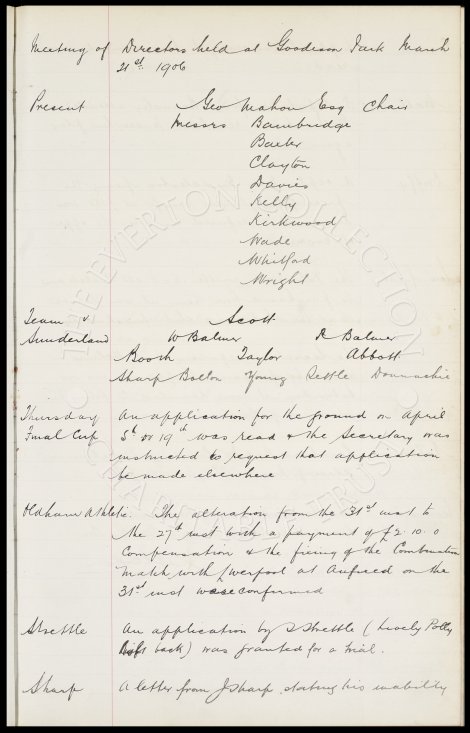 Meeting of Directors held at Goodison Park March
21st. 1906
Present Geo Mahon Esq Chair
Messrs Bainbridge
Baxter
Clayton
Davies
Kelly
Kirkwood
Wade
Whitford
Wright
Team v Scott
Sunderland W Balmer R Balmer
Booth Taylor Abbott
Sharp Bolton Young Settle Donnachie
Thursday An application for the ground on April
Final Cup 5th or 19th was read & the Secretary was
instructed to request that application
be made elsewhere
Oldham Athletic The alteration from the 31st inst to
the 27th inst with a payment of £2.10.0
Compensation & the fixing of the Combination
Match with Liverpool at Anfield on the
31st inst were confirmed
Strettle An application by S Strettle (Lively Polly
back) was granted for a trial.
Sharp A letter from J Sharp, stating his inability
THE EVERTON COLLECTION
CHARITABLE TRUST